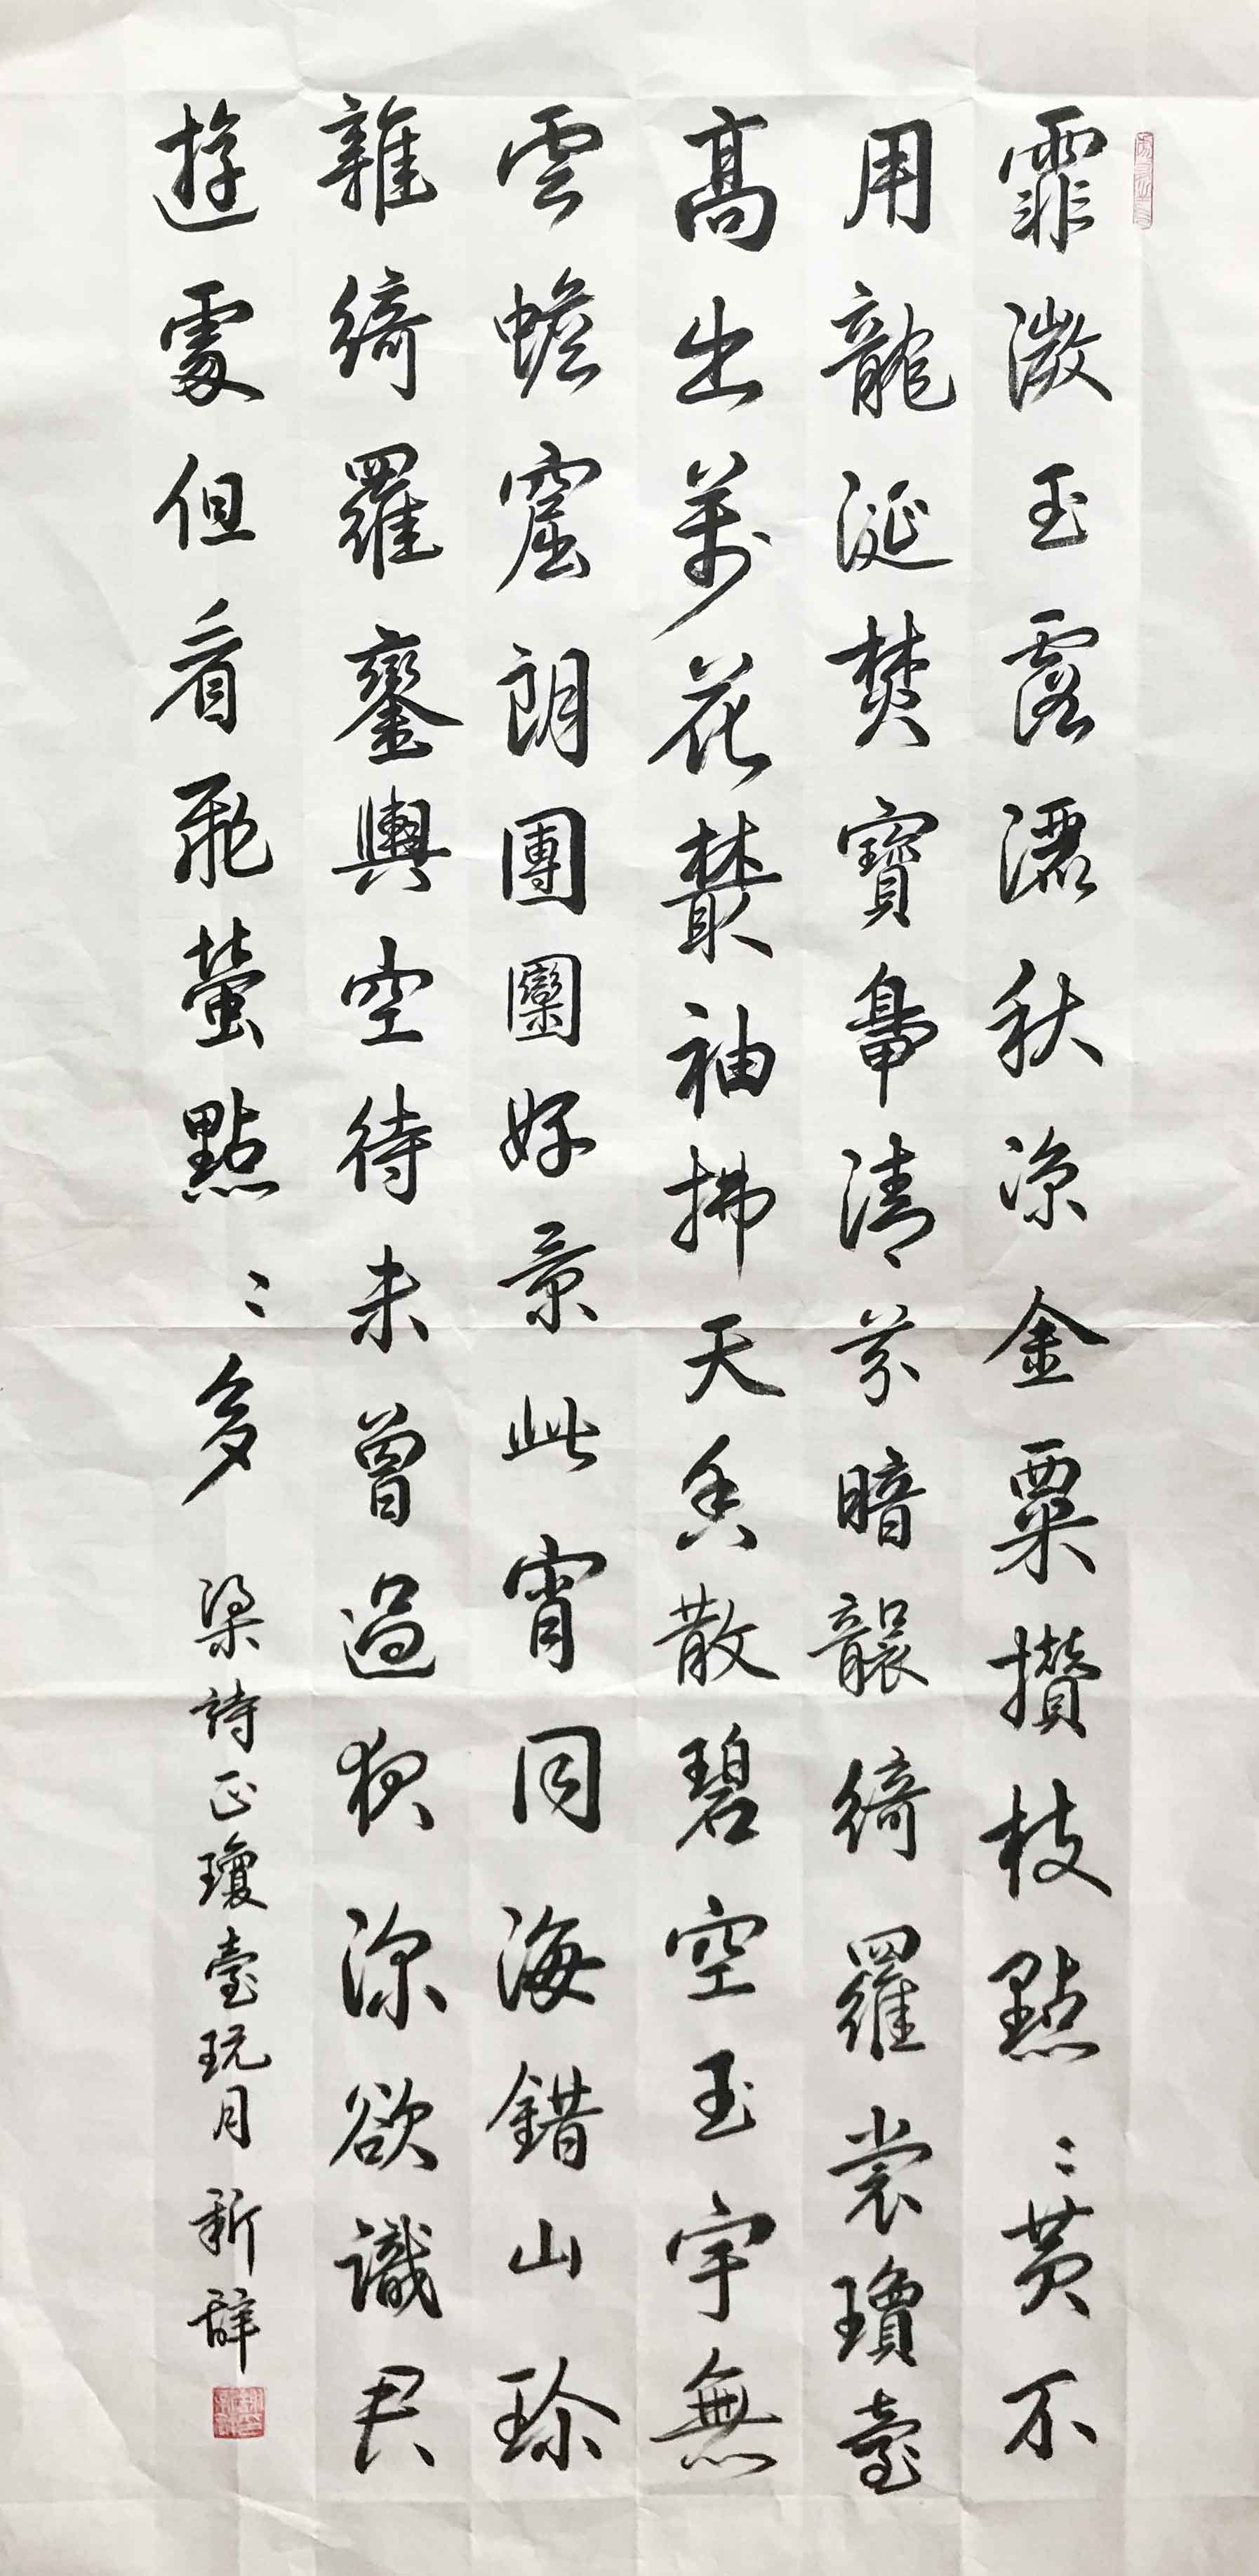 霏微玉露洒秋凉金粟攢枝點〻黄不
用龍涎焚寶鼻清芬暗襲綺羅裳瓊臺
高出萬花叢袖拂天香散碧空玉宇無
雲蟾窟朗團圞好景此宵同海錯山珍
雜綺羅鑾輿空待未曾過夜深欲識君
遊處但看飛螢點〻多
梁詩正瓊臺玩月 新辭